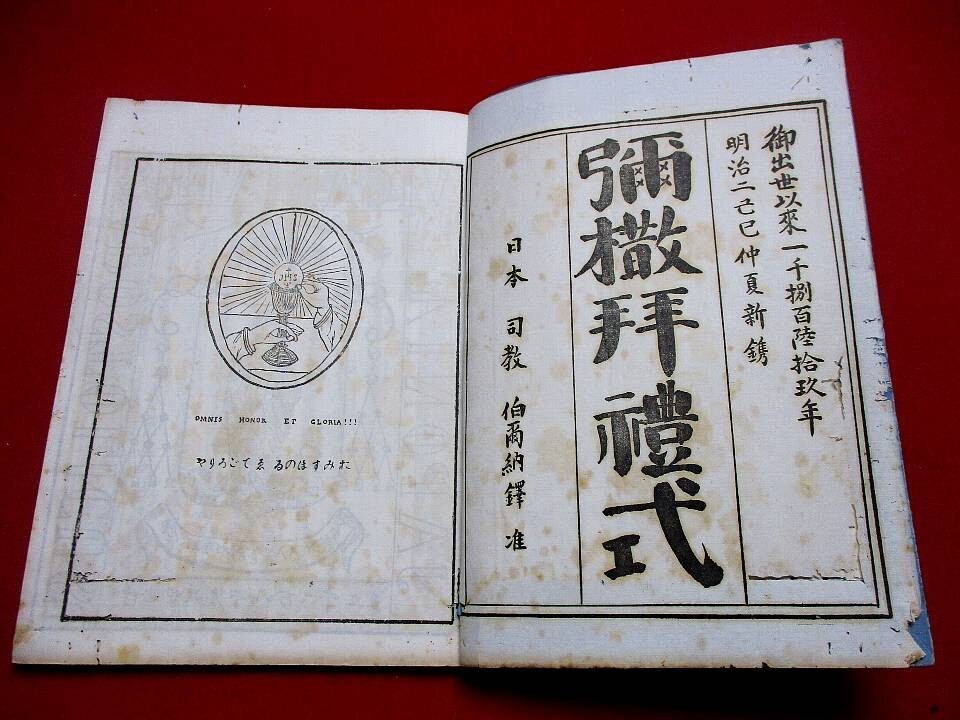 御出世以來一千捌百陸拾玖年
明治二己巳仲夏新鐫
彌撒拜禮式
日本 司教 伯爾納鐸 准
IHS
OMNIS HONOR ET GLORIA!!!
おみすほのる ゑ てごろりや